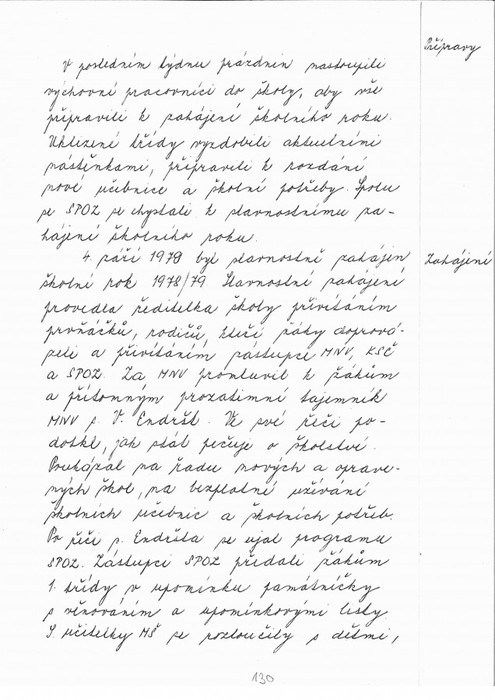 Přípravy
V posledním týdnu prázdnin nastoupili
výchovní pracovníci do školy, aby vše
připravili k zahájení školního roku.
Uklizené třídy vyzdobili aktuelními
nástěnkami, připravili k rozdání
nové učebnice a školní potřeby. Spolu
se SPOZ se chystali k slavnostnímu za-
hájení školního roku.
Zahájení
4. září 1979 byl slavnostně zahájen
školní rok 1978/79. Slavnostní zahájení
provedla ředitelka školy přivítáním
prvňáčků, rodičů, kteří žáky doprová-
zeli a přivítáním zástupců MNV, KSČ
a SPOZ. Za MNV promluvil k žákům
a přítomným prozatimní tajemník
MNV p. V. Endršt. Ve své řeči po-
dotkl, jak stát pečuje o školství.
Poukázal na řadu nových a oprave-
ných škol, na bezplatné užívání
školních učebnic a školních potřeb.
Po řeči p. Endršta se ujal programu
SPOZ. Zástupci SPOZ předali žákům
1. třídy v upomínku památníčky
s věnováním a upomínkovými listy.
S. učitelky MŠ se rozloučily s dětmi,
130